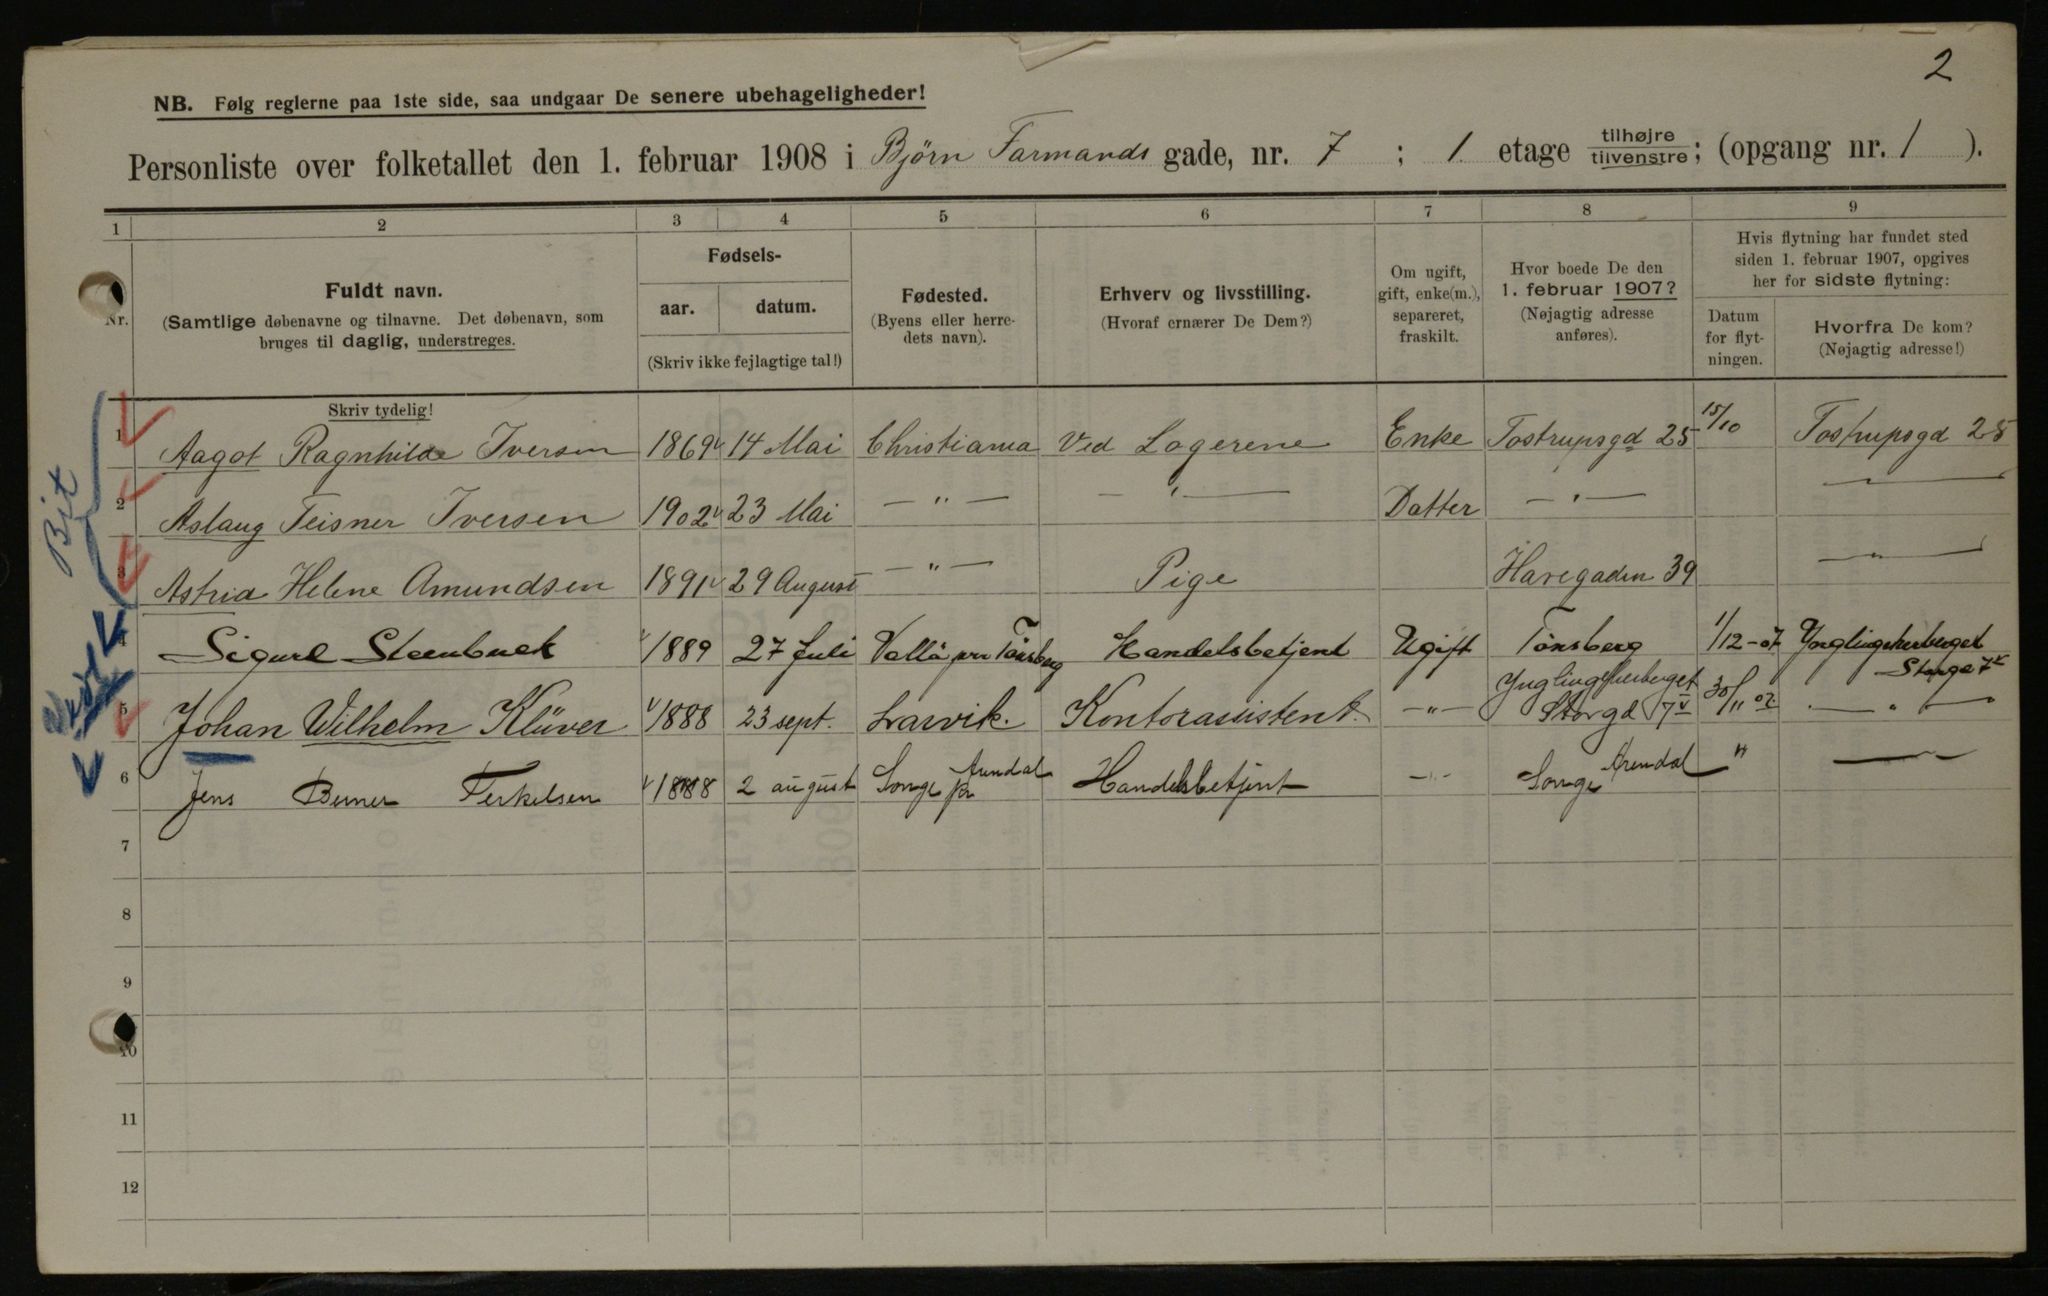 2
NB. Følg reglerne paa 1ste side, saa undgaar De senere ubehageligheder!
Personliste over folketallet den 1. februar 1908 i Bjørn Farmands gade, nr. 7 ; 1 etage tilhøjre tilvenstre; (opgang nr. 1 ).
1 2 3 4 5 6 7 8 9
Nr.
Fuldt navn.
(Samtlige døbenavne og tilnavne. Det døbenavn, som
bruges til daglig, understreges.
Fødsels-
aar. datum.
(Skriv ikke fejlagtige tal!)
Fødested.
(Byens eller herre-
dets navn).
Erhverv og livsstilling.
(Hvoraf ernærer De Dem?)
Om ugift,
gift, enke(m.),
separeret,
fraskilt.
Hvor boede De den
1. februar 1907?
(Nøjagtig adresse
anføres).
Hvis flytning har fundet sted
siden 1. februar 1907, opgives
her for sidste flytning:
Datum
for flyt-
ningen.
Hvorfra De kom?
(Nøjagtig adresse!)
Skriv tydelig!
1 Aagot Ragnhilde Iversen 1869 14 Mai Christiania Ved Logerene Enke Tostrupsgd 25 15/10 Tostrupsgd 25
2 Aslaug Teisner Iversen 1902 23 Mai — " — — " — Datter — " — —
3 Astrid Helene Amundsen 1891 29 August — " — Pige Havegaden 39 — " —
4 Sigurd Steenbuck 1889 27 Juli Vallø pr Tønsberg Handelsbetjent Ugift Tønsberg 1/12-07 Ynglingeherberget
Storgt 7 V
5 Johan Wilhelm Klüver 1888 23 sept. Larvik. Kontorassistent. — " — Ynglingeherberget
Storgd 7 V 30/11 07 — " —
6 Jens Berner Terkelsen 1888 2 august Songe pr Arendal Handelsbetjent — " — Songe Arendal " —
7
8
9
10
11
12
Bit